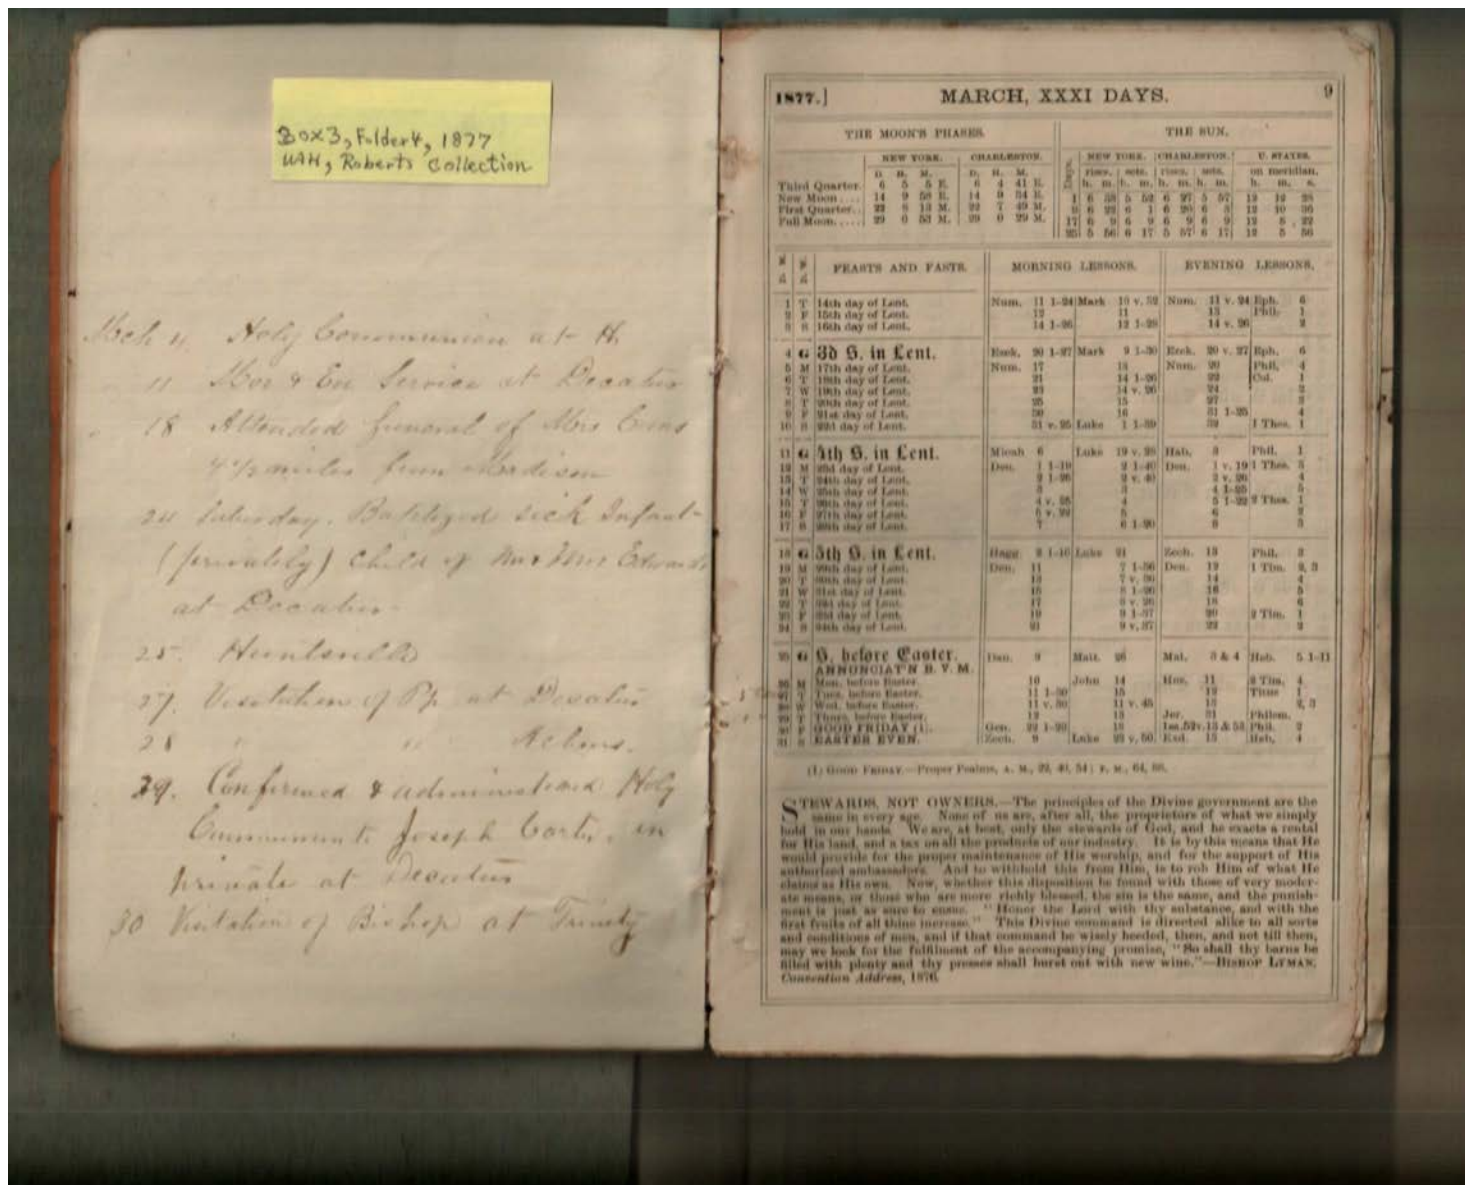 Box 3, Folder 4, 1877
UAH, Roberts Collection
Mch 4. Holy Communion at H.
11 Mor & Ev Service at Decatur
18 Attended funeral of Mrs
4 1/2 miles from Madison
24 Saturday. Baptized sick Infant
(privately) Child of Mr & Mrs Edwards
at Decatur
25. Huntsville
27. Visitation of Bp at Decatur
28 " " Athens.
29. Confirmed & administered Holy
Communion to Joseph Carter, in
private at Decatur
30 Visitation of Bishop at Trinity
1877.] MARCH, XXXI DAYS. 9
THE MOON'S PHASES. THE SUN.
NEW YORK. CHARLESTON. NEW YORK. CHARLESTON. U. STATES.
D. H. M. D. H. M. Days. rises. sets. rises. sets. on meridian.
h. m. h. m. h. m. h. m. h. m. s.
Third Quarter. 6 5 5 E. 6 4 41 E.
New Moon.... 14 9 58 E. 14 9 34 E.
First Quarter.. 22 8 13 M. 22 7 49 M.
Full Moon..... 29 0 53 M. 29 0 29 M.
FEASTS AND FASTS. MORNING LESSONS. EVENING LESSONS.
1 T 14th day of Lent. Num. 11 1-24 Mark 10 v. 32 Num. 11 v. 24 Eph. 6
2 F 15th day of Lent. 12 11 13 Phil. 1
3 S 16th day of Lent. 14 1-26 12 1-28 14 v. 26 2
4 G 3d S. in Lent. Ezek. 20 1-27 Mark 9 1-30 Ezek. 20 v. 27 Eph. 6
5 M 17th day of Lent. Num. 17 Num. 20 Phil. 4
6 T 18th day of Lent. 21 14 1-26 22 Col. 1
7 W 19th day of Lent. 23 14 v. 26 24 2
8 T 20th day of Lent. 25 15 27 3
9 F 21st day of Lent. 30 16 31 1-25 4
10 S 22d day of Lent. 31 v. 25 Luke 1 1-39 32 1 Thes. 1
11 G 4th S. in Lent. Micah 6 Luke 19 v. 28 Hab. 3 Phil. 1
12 M 23d day of Lent. Deu. 1 1-19 2 1-40 Deu. 1 v. 19 1 Thes. 3
13 T 24th day of Lent. 2 1-26 2 v. 40 2 v. 26 4
14 W 25th day of Lent. 3 3 4 1-25 5
15 T 26th day of Lent. 4 v. 25 4 5 1-22 2 Thes. 1
16 F 27th day of Lent. 5 v. 22 5 6 2
17 S 28th day of Lent. 7 6 1-20 8 3
18 G 5th S. in Lent. Hagg. 2 1-10 Luke 21 Zech. 13 Phil. 3
19 M 29th day of Lent. Deu. 11 7 1-36 Deu. 12 1 Tim. 2, 3
20 T 30th day of Lent. 13 7 v. 36 14 4
21 W 31st day of Lent. 15 8 1-26 16 5
22 T 32d day of Lent. 17 8 v. 26 18 6
23 F 33d day of Lent. 19 9 1-37 20 2 Tim. 1
24 S 34th day of Lent. 21 9 v. 37 22 2
25 G S. before Easter. Dan. 9 Matt. 26 Mal. 3 & 4 Heb. 5 1-11
ANNUNCIAT'N B. V. M.
26 M Mon. before Easter. 10 John 14 Hos. 11 2 Tim. 4
27 T Tues. before Easter. 11 1-30 15 12 Titus 1
28 W Wed. before Easter. 11 v. 30 11 v. 45 13 2, 3
29 T Thurs. before Easter. 12 13 Jer. 31 Philem.
30 F GOOD FRIDAY (1). Gen. 22 1-20 18 Isa. 52 v. 13 & 53 Phil. 2
31 S EASTER EVEN. Zech. 9 Luke 23 v. 50 Exd. 13 Heb. 4
(1) GOOD FRIDAY.—Proper Psalms, A. M., 22, 40, 54; P. M., 64, 88.
STEWARDS, NOT OWNERS.—The principles of the Divine government are the
same in every age. None of us are, after all, the proprietors of what we simply
hold in our hands. We are, at best, only the stewards of God, and he exacts a rental
for His land, and a tax on all the products of our industry. It is by this means that He
would provide for the proper maintenance of His worship, and for the support of His
authorized ambassadors. And to withhold this from Him, is to rob Him of what He
claims as His own. Now, whether this disposition be found with those of very moder-
ate means, or those who are more richly blessed, the sin is the same, and the punish-
ment is just as sure to ensue. "Honor the Lord with thy substance, and with the
first fruits of all thine increase." This Divine command is directed alike to all sorts
and conditions of men, and if that command be wisely heeded, then, and not till then,
may we look for the fulfilment of the accompanying promise, "So shall thy barns be
filled with plenty and thy presses shall burst out with new wine."—BISHOP LYMAN,
Convention Address, 1876.